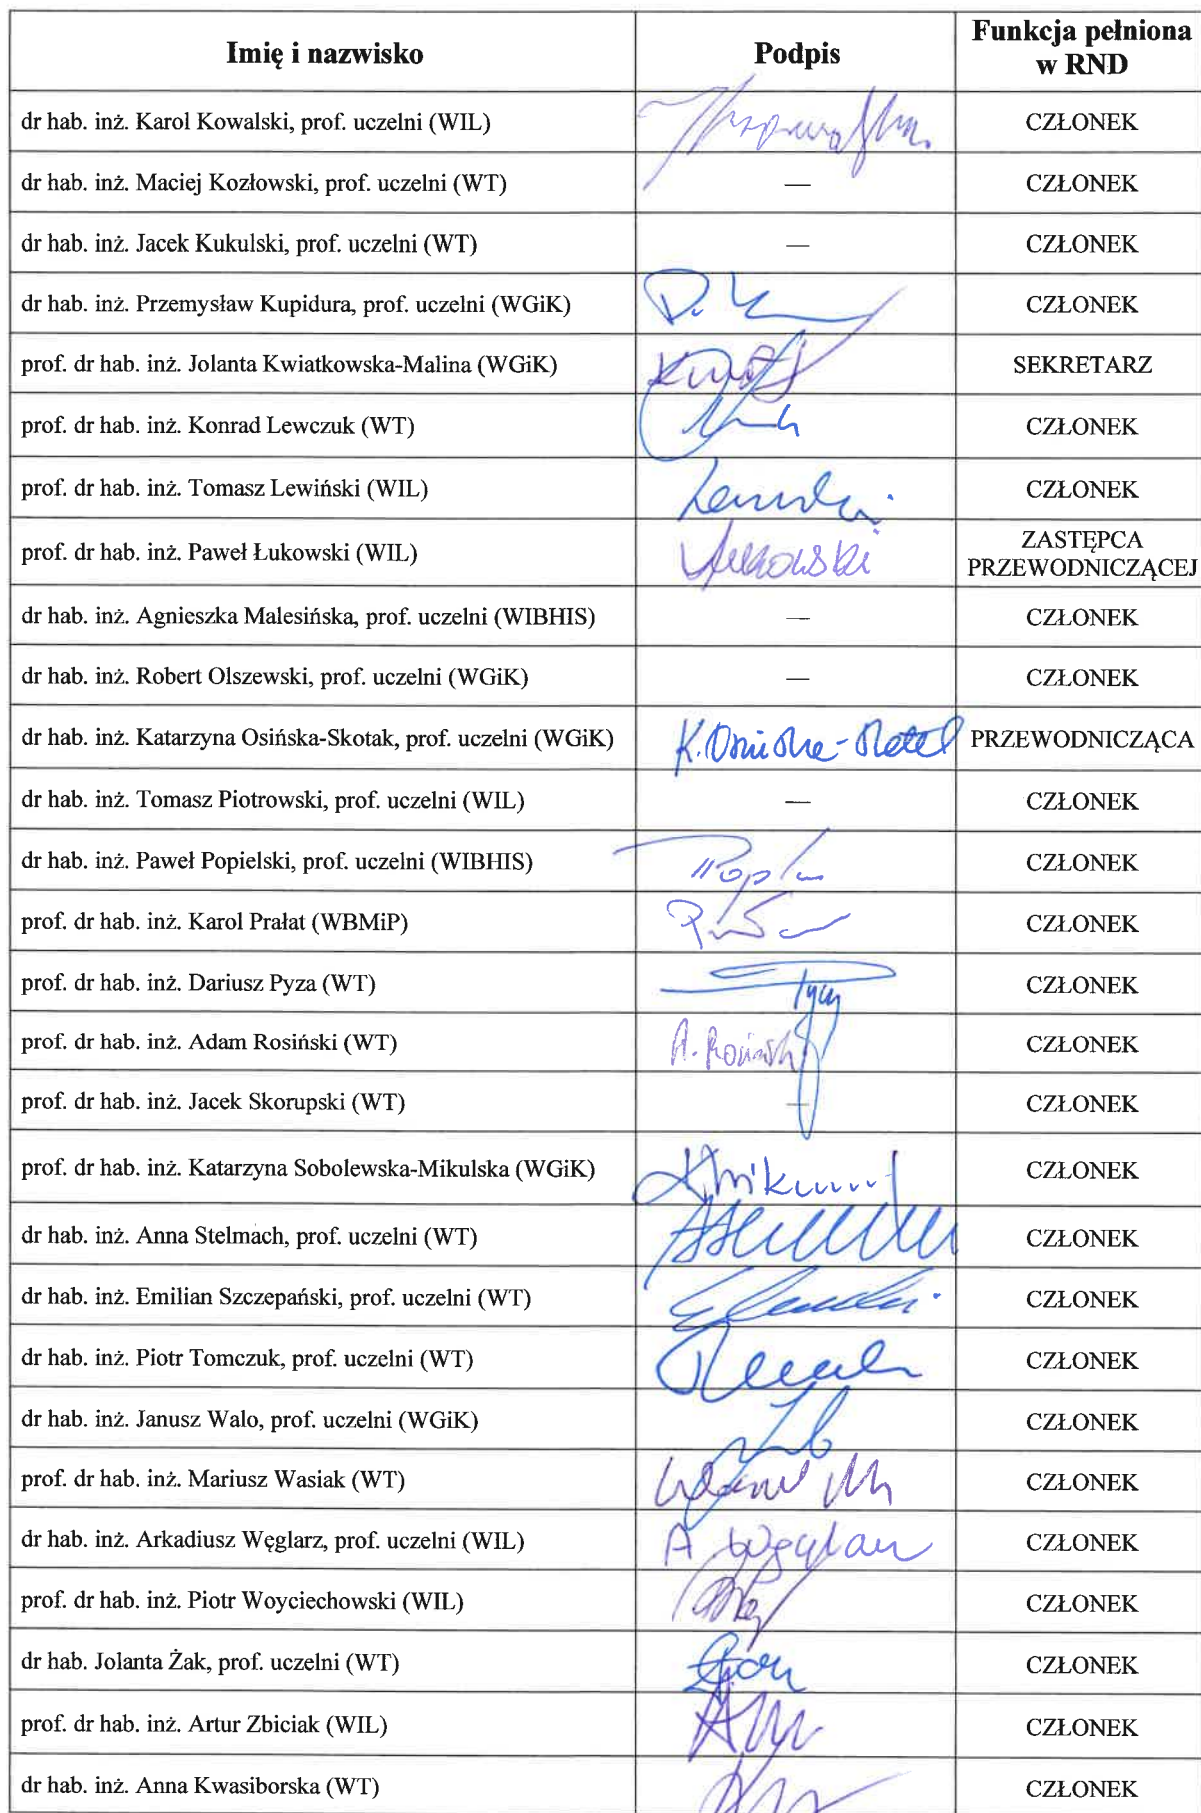 Imię i nazwisko Podpis Funkcja pełniona
w RND
dr hab. inż. Karol Kowalski, prof. uczelni (WIL) CZŁONEK
dr hab. inż. Maciej Kozłowski, prof. uczelni (WT) — CZŁONEK
dr hab. inż. Jacek Kukulski, prof. uczelni (WT) — CZŁONEK
dr hab. inż. Przemysław Kupidura, prof. uczelni (WGiK) CZŁONEK
prof. dr hab. inż. Jolanta Kwiatkowska-Malina (WGiK) SEKRETARZ
prof. dr hab. inż. Konrad Lewczuk (WT) CZŁONEK
prof. dr hab. inż. Tomasz Lewiński (WIL) CZŁONEK
prof. dr hab. inż. Paweł Łukowski (WIL) Łukowski ZASTĘPCA
PRZEWODNICZĄCEJ
dr hab. inż. Agnieszka Malesińska, prof. uczelni (WIBHIS) — CZŁONEK
dr hab. inż. Robert Olszewski, prof. uczelni (WGiK) — CZŁONEK
dr hab. inż. Katarzyna Osińska-Skotak, prof. uczelni (WGiK) PRZEWODNICZĄCA
dr hab. inż. Tomasz Piotrowski, prof. uczelni (WIL) — CZŁONEK
dr hab. inż. Paweł Popielski, prof. uczelni (WIBHIS) CZŁONEK
prof. dr hab. inż. Karol Prałat (WBMiP) CZŁONEK
prof. dr hab. inż. Dariusz Pyza (WT) CZŁONEK
prof. dr hab. inż. Adam Rosiński (WT) A. Rosiński CZŁONEK
prof. dr hab. inż. Jacek Skorupski (WT) — CZŁONEK
prof. dr hab. inż. Katarzyna Sobolewska-Mikulska (WGiK) CZŁONEK
dr hab. inż. Anna Stelmach, prof. uczelni (WT) CZŁONEK
dr hab. inż. Emilian Szczepański, prof. uczelni (WT) CZŁONEK
dr hab. inż. Piotr Tomczuk, prof. uczelni (WT) CZŁONEK
dr hab. inż. Janusz Walo, prof. uczelni (WGiK) CZŁONEK
prof. dr hab. inż. Mariusz Wasiak (WT) CZŁONEK
dr hab. inż. Arkadiusz Węglarz, prof. uczelni (WIL) A Węglarz CZŁONEK
prof. dr hab. inż. Piotr Woyciechowski (WIL) CZŁONEK
dr hab. Jolanta Żak, prof. uczelni (WT) CZŁONEK
prof. dr hab. inż. Artur Zbiciak (WIL) CZŁONEK
dr hab. inż. Anna Kwasiborska (WT) CZŁONEK